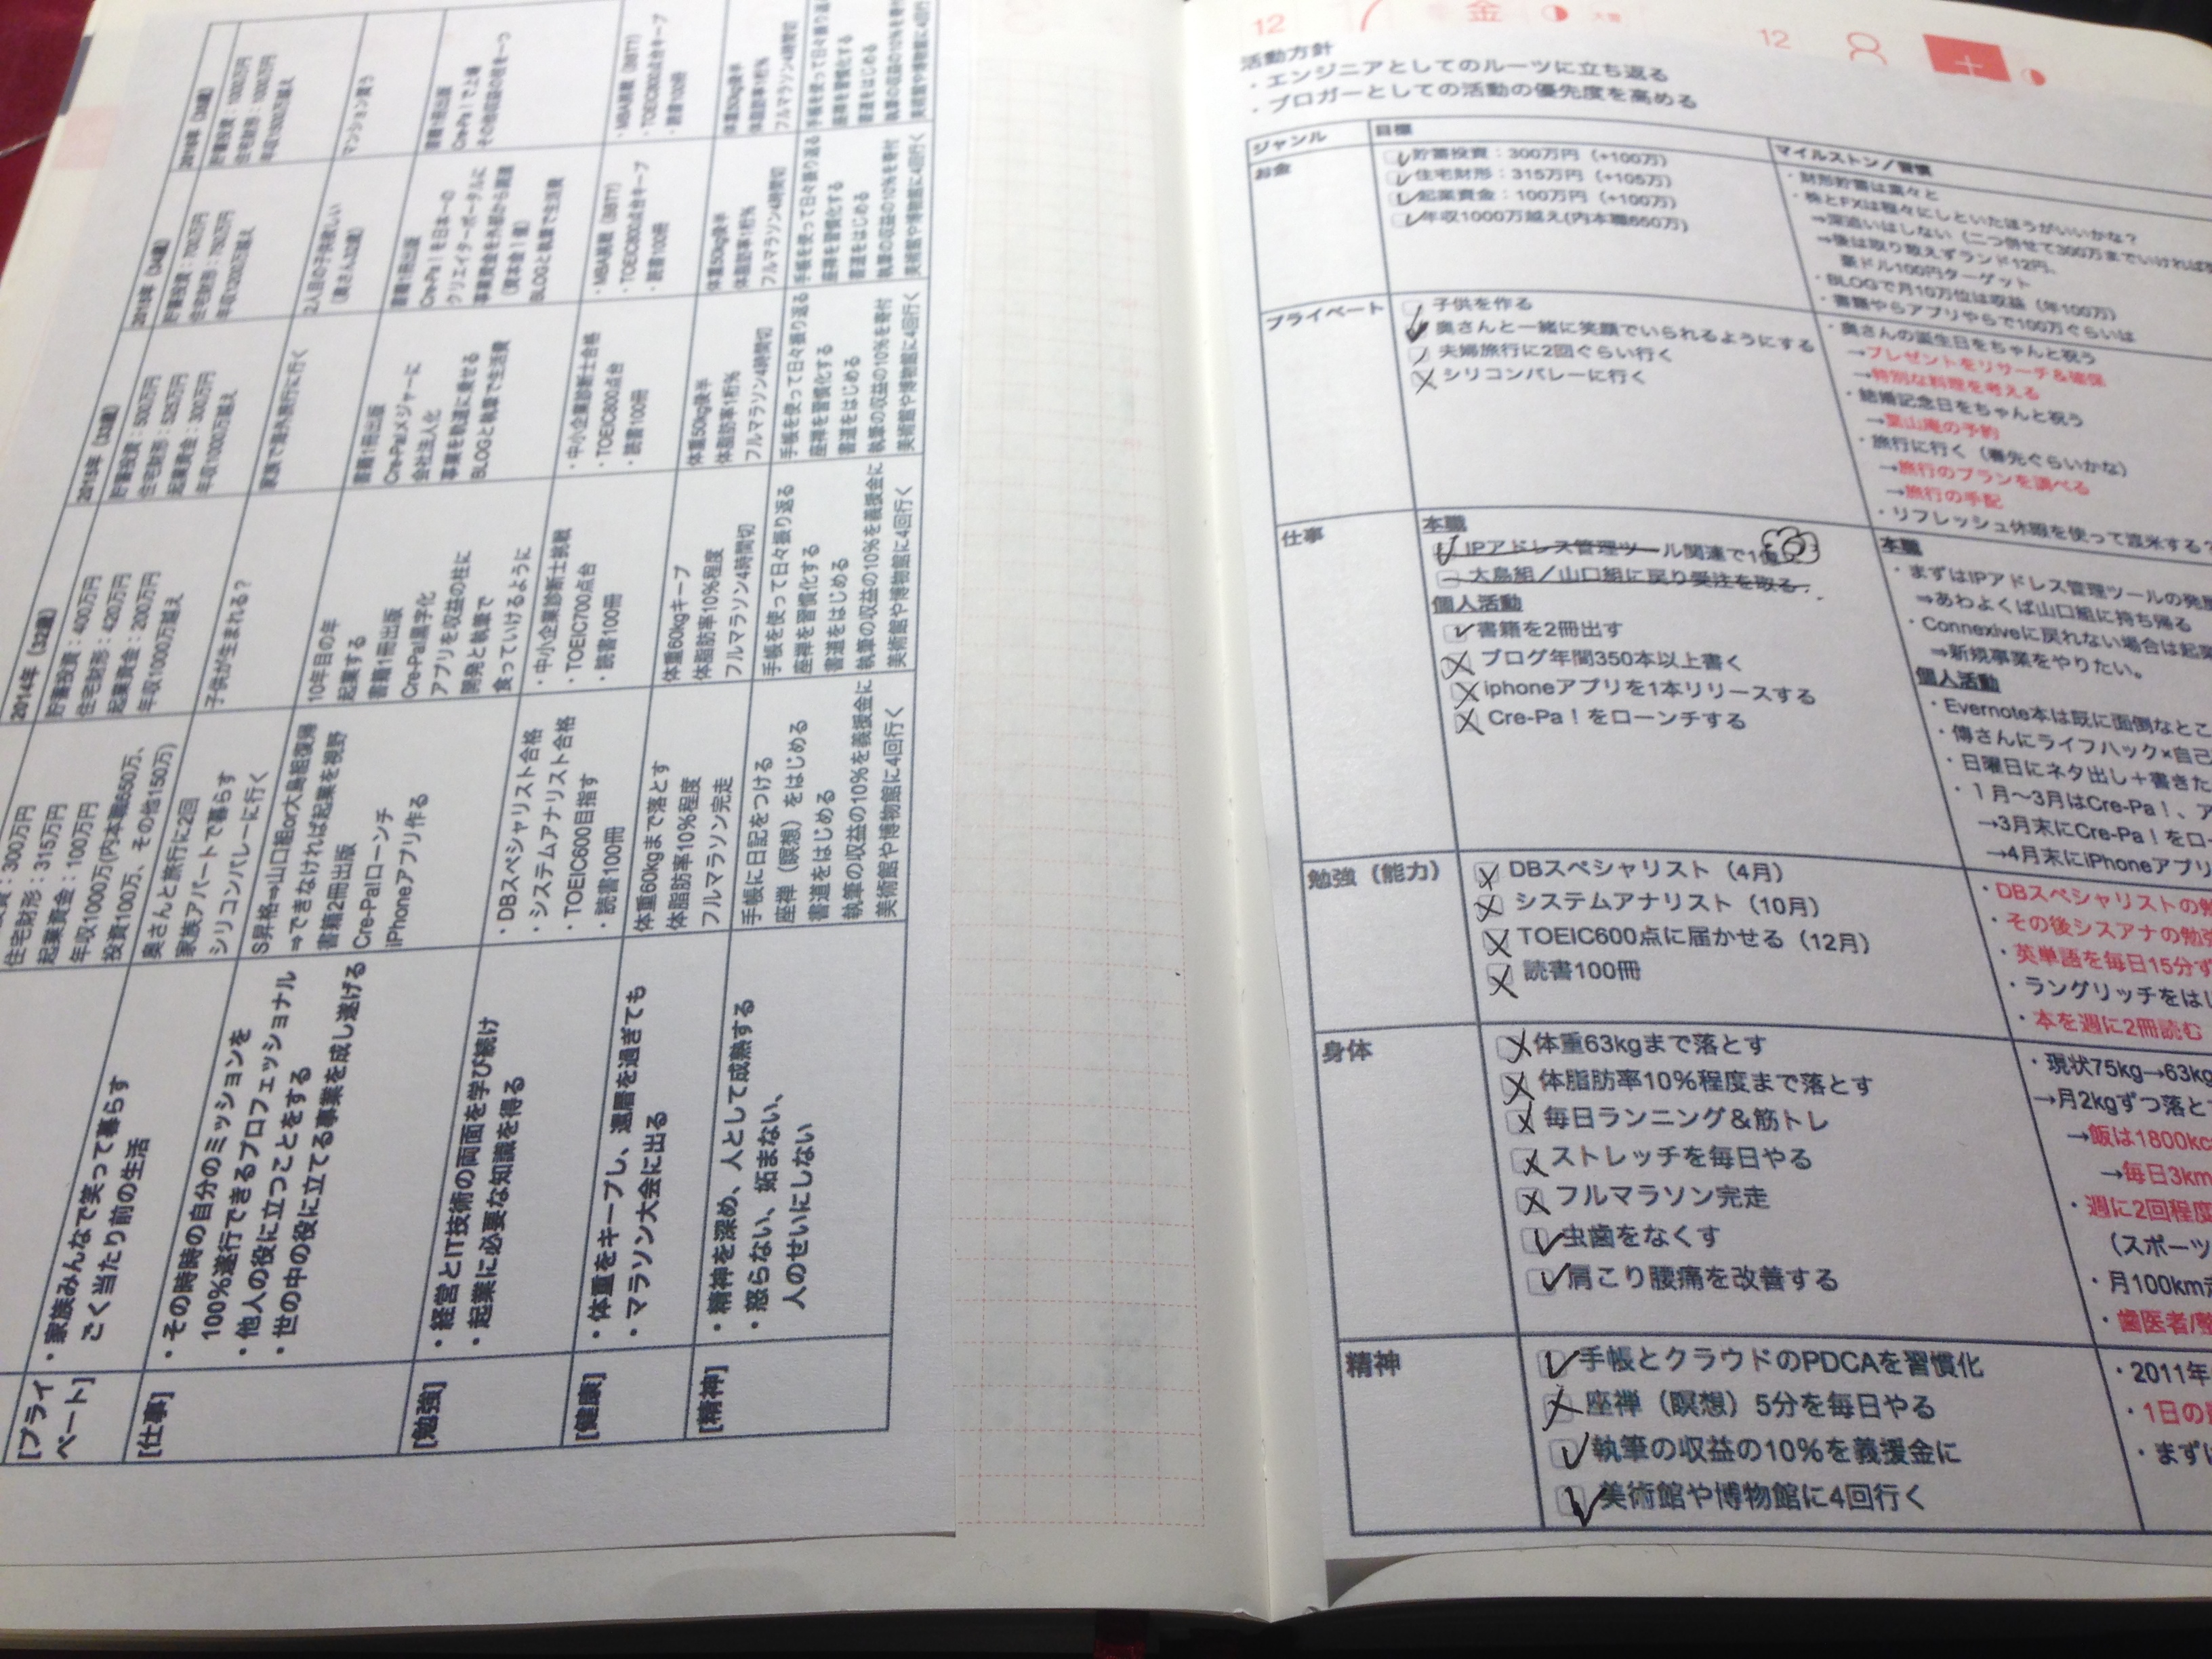 [プライ
ベート]
・家族みんなで笑って暮らす
ごく当たり前の生活
奥さんと旅行に2回
家族アパートで暮らす
シリコンバレーに行く
子供が生まれる？
家族で海外旅行に行く
2人目の子供欲しい
(奥さん32歳)
マンション買う
住宅財形：315万円
起業資金：100万円
年収1000万(内本職650万、
投資100万、その他150万)
2014年 (32歳)
貯蓄投資：400万円
住宅財形：420万円
起業資金：200万円
年収1000万越え
2015年 (33歳)
貯蓄投資：500万円
住宅財形：525万円
起業資金：300万円
年収1000万越え
(34歳)
貯蓄投資：700万円
年収1200万越え
[仕事]
・その時時の自分のミッションを
100%遂行できるプロフェッショナル
・他人の役に立つことをする
・世の中の役に立てる事業を成し遂げる
S昇格⇒山口組or大島組復帰
⇒できなければ起業を視野
書籍2冊出版
Cre-Pa!ローンチ
iPhoneアプリ作る
10年目の年
起業する
書籍1冊出版
Cre-Pa!黒字化
アプリを収益の柱に
開発と執筆で
食っていけるように
書籍1冊出版
Cre-Pa!メジャーに
会社法人化
事業を軌道に乗せる
BLOGと執筆で生活費
書籍1冊出版
Cre-Pa！を日本一の
クリエイターポータルに
事業資金を外部から調達
(資本金1億)
BLOGと執筆で生活費
書籍1冊出版
Cre-Pa！で上場
その他収益の柱を一つ
[勉強]
・経営とIT技術の両面を学び続け
・起業に必要な知識を得る
・DBスペシャリスト合格
・システムアナリスト合格
・TOEIC600目指す
・読書100冊
・中小企業診断士挑戦
・TOEIC700点台
・読書100冊
・中小企業診断士合格
・TOEIC800点台
・読書100冊
・MBA挑戦 (BBT?)
・TOEIC800点台キープ
・読書100冊
・MBA挑戦 (BBT?)
・TOEIC800点台キープ
・読書100冊
[健康]
・体重をキープし、還暦を過ぎても
・マラソン大会に出る
体重60kgまで落とす
体脂肪率10%程度
フルマラソン完走
体重60kgキープ
体脂肪率10%程度
フルマラソン4時間切
体重50kg後半
体脂肪率1桁%
フルマラソン4時間切
体重50kg後半
体脂肪率1桁%
フルマラソン4時間切
体重50kg後半
体脂肪率1桁%
フルマラソン4時間切
[精神]
・精神を深め、人として成熟する
・怒らない、妬まない、
人のせいにしない
手帳に日記をつける
座禅（瞑想）をはじめる
書道をはじめる
執筆の収益の10%を義援金に
美術館や博物館に4回行く
手帳を使って日々振り返る
座禅を習慣化する
書道をはじめる
執筆の収益の10%を義援金に
美術館や博物館に4回行く
手帳を使って日々振り返る
座禅を習慣化する
書道をはじめる
執筆の収益の10%を寄付
美術館や博物館に4回行く
手帳を使って日々振り返る
座禅を習慣化する
書道をはじめる
執筆の収益の10%を寄付
美術館や博物館に4回行く
12 7 金
12 8
活動方針
・エンジニアとしてのルーツに立ち返る
・ブロガーとしての活動の優先度を高める
ジャンル 目標 マイルストン／習慣
お金
貯蓄投資：300万円（+100万）
住宅財形：315万円（+105万）
起業資金：100万円（+100万）
年収1000万越え(内本職650万)
・財形貯蓄は粛々と
・株とFXは程々にしといたほうがいいかな？
⇒深追いはしない（二つ併せて300万までいければ
⇒後は取り敢えずランド12円、
豪ドル100円ターゲット
・BLOGで月10万位は収益（年100万）
・書籍やらアプリやらで100万ぐらいは
プライベート
子供を作る
奥さんと一緒に笑顔でいられるようにする
夫婦旅行に2回ぐらい行く
シリコンバレーに行く
・奥さんの誕生日をちゃんと祝う
→プレゼントをリサーチ＆確保
→特別な料理を考える
・結婚記念日をちゃんと祝う
→葉山庵の予約
・旅行に行く（春先ぐらいかな）
→旅行のプランを調べる
→旅行の手配
・リフレッシュ休暇を使って渡米する？
仕事
本職
IPアドレス管理ツール関連で1億
大島組／山口組に戻り受注を取る.
個人活動
書籍を2冊出す
ブログ年間350本以上書く
iphoneアプリを1本リリースする
Cre-Pa！をローンチする
本職
・まずはIPアドレス管理ツールの発
⇒あわよくば山口組に持ち帰る
・Connexiveに戻れない場合は起業
⇒新規事業をやりたい。
個人活動
・Evernote本は既に面倒なとこ
・傳さんにライフハック×自己
・日曜日にネタ出し＋書きた
・1月〜3月はCre-Pa！、ア
→3月末にCre-Pa！をロー
→4月末にiPhoneアプリ
勉強（能力）
DBスペシャリスト（4月）
システムアナリスト（10月）
TOEIC600点に届かせる（12月）
読書100冊
・DBスペシャリストの勉
・その後シスアナの勉強
・英単語を毎日15分ず
・ラングリッチをはじ
・本を週に2冊読む
身体
体重63kgまで落とす
体脂肪率10%程度まで落とす
毎日ランニング＆筋トレ
ストレッチを毎日やる
フルマラソン完走
虫歯をなくす
肩こり腰痛を改善する
・現状75kg→63kg
→月2kgずつ落と
→飯は1800kc
→毎日3km
・週に2回程度
（スポーツ
・月100km
・歯医者/整
精神
手帳とクラウドのPDCAを習慣化
座禅（瞑想）5分を毎日やる
執筆の収益の10%を義援金に
美術館や博物館に4回行く
・2011年
・1日の
・まずは